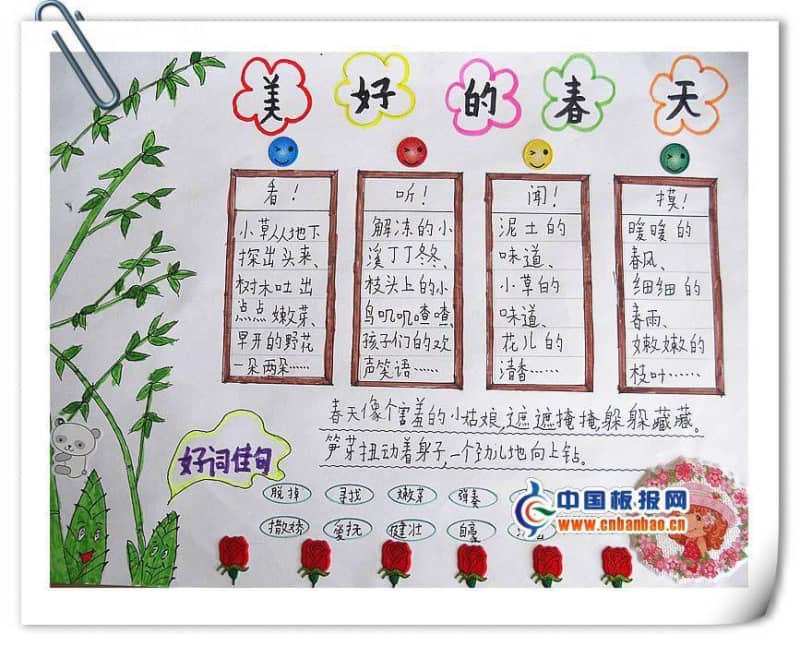 美好的春天
看!
小草从地下
探出头来、
树木吐出
点点嫩芽、
早开的野花
一朵两朵……
听!
解冻的小
溪丁丁冬冬、
枝头上的小
鸟叽叽喳喳、
孩子们的欢
声笑语……
闻!
泥土的
味道、
小草的
味道、
花儿的
清香……
摸!
暖暖的
春风、
细细的
春雨、
嫩嫩的
枝叶……
春天像个害羞的小姑娘,遮遮掩掩,躲躲藏藏。
笋芽扭动着身子,一个劲儿地向上钻。
好词佳句
脱掉 寻找 嫩草 弹奏
撒娇 爱抚 健壮 自豪
中国板报网
www.cnbanbao.cn